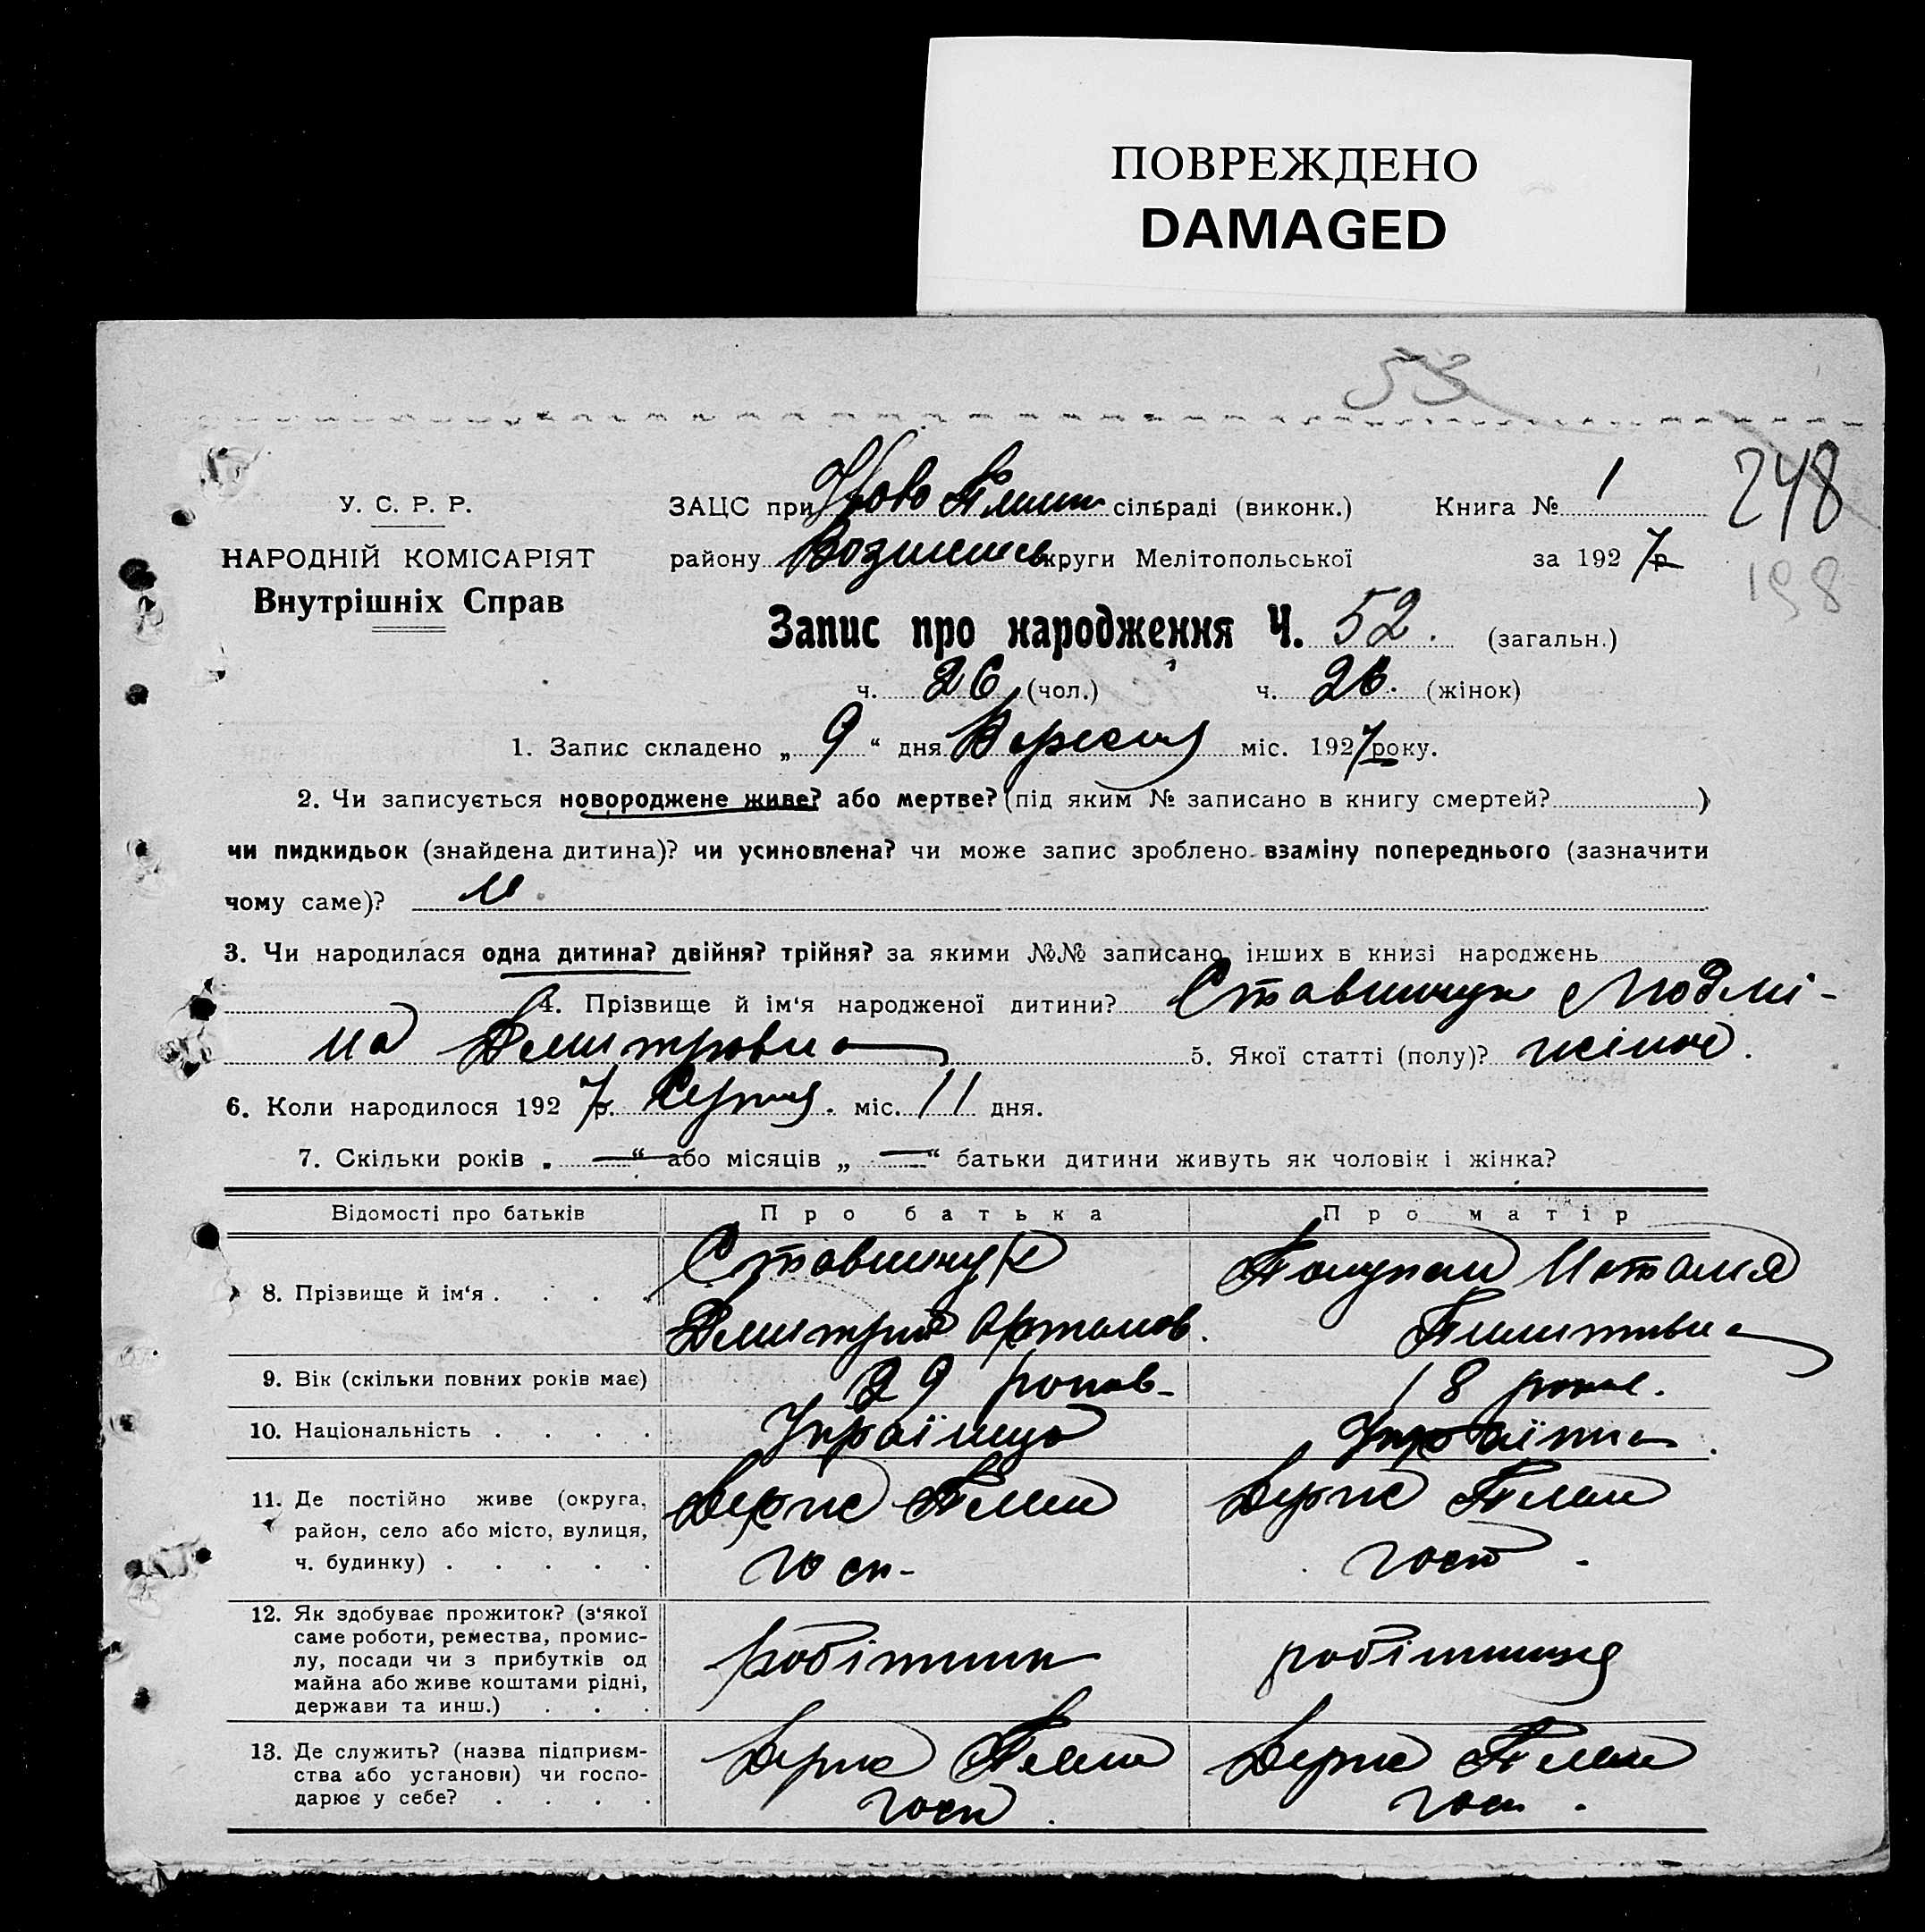 ПОВРЕЖДЕНО
DAMAGED
53
У. С. Р. Р.
НАРОДНІЙ КОМІСАРІЯТ
Внутрішніх Справ
ЗАЦС при Ново сільраді (виконк.) Книга № 1
248
району округи Мелітопольської за 1927 р.
198
Запис про народження Ч. 52. (загальн.)
ч. 26 (чол.) ч. 26. (жінок)
1. Запис складено „ 9 “ дня Вересня міс. 1927 року.
2. Чи записується новороджене живе? або мертве? (під яким № записано в книгу смертей? )
чи пидкидьок (знайдена дитина)? чи усиновлена? чи може запис зроблено взаміну попереднього (зазначити
чому саме)?
3. Чи народилася одна дитина? двійня? трійня? за якими №№ записано інших в книзі народжень
4. Прізвище й ім‘я народженої дитини? Ставничук Людмі-
ла Дмитровна 5. Якої статті (полу)? жіноч.
6. Коли народилося 1927 р. Серпня. міс. 11 дня.
7. Скільки років „ — “ або місяців „ — “ батьки дитини живуть як чоловік і жінка?
Відомості про батьків Про батька Про матір
8. Прізвище й ім‘я . . . . Ставничук Наталя
Дмитрий
9. Вік (скільки повних років має) 29 років 18 років.
10. Національність . . . . Українець Українка.
11. Де постійно живе (округа, район, село або місто, вулиця, ч. будинку) . . . . . Держ Плем Держ Плем
госп.
12. Як здобуває прожиток? (з‘якої
саме роботи, ремества, промис-
лу, посади чи з прибутків од
майна або живе коштами рідні,
держави та инш.) . . . робітник робітниця
13. Де служить? (назва підприєм-
ства або установи) чи госпо-
дарює у себе? . . . . Держ Плем Держ Плем
госп. госп.